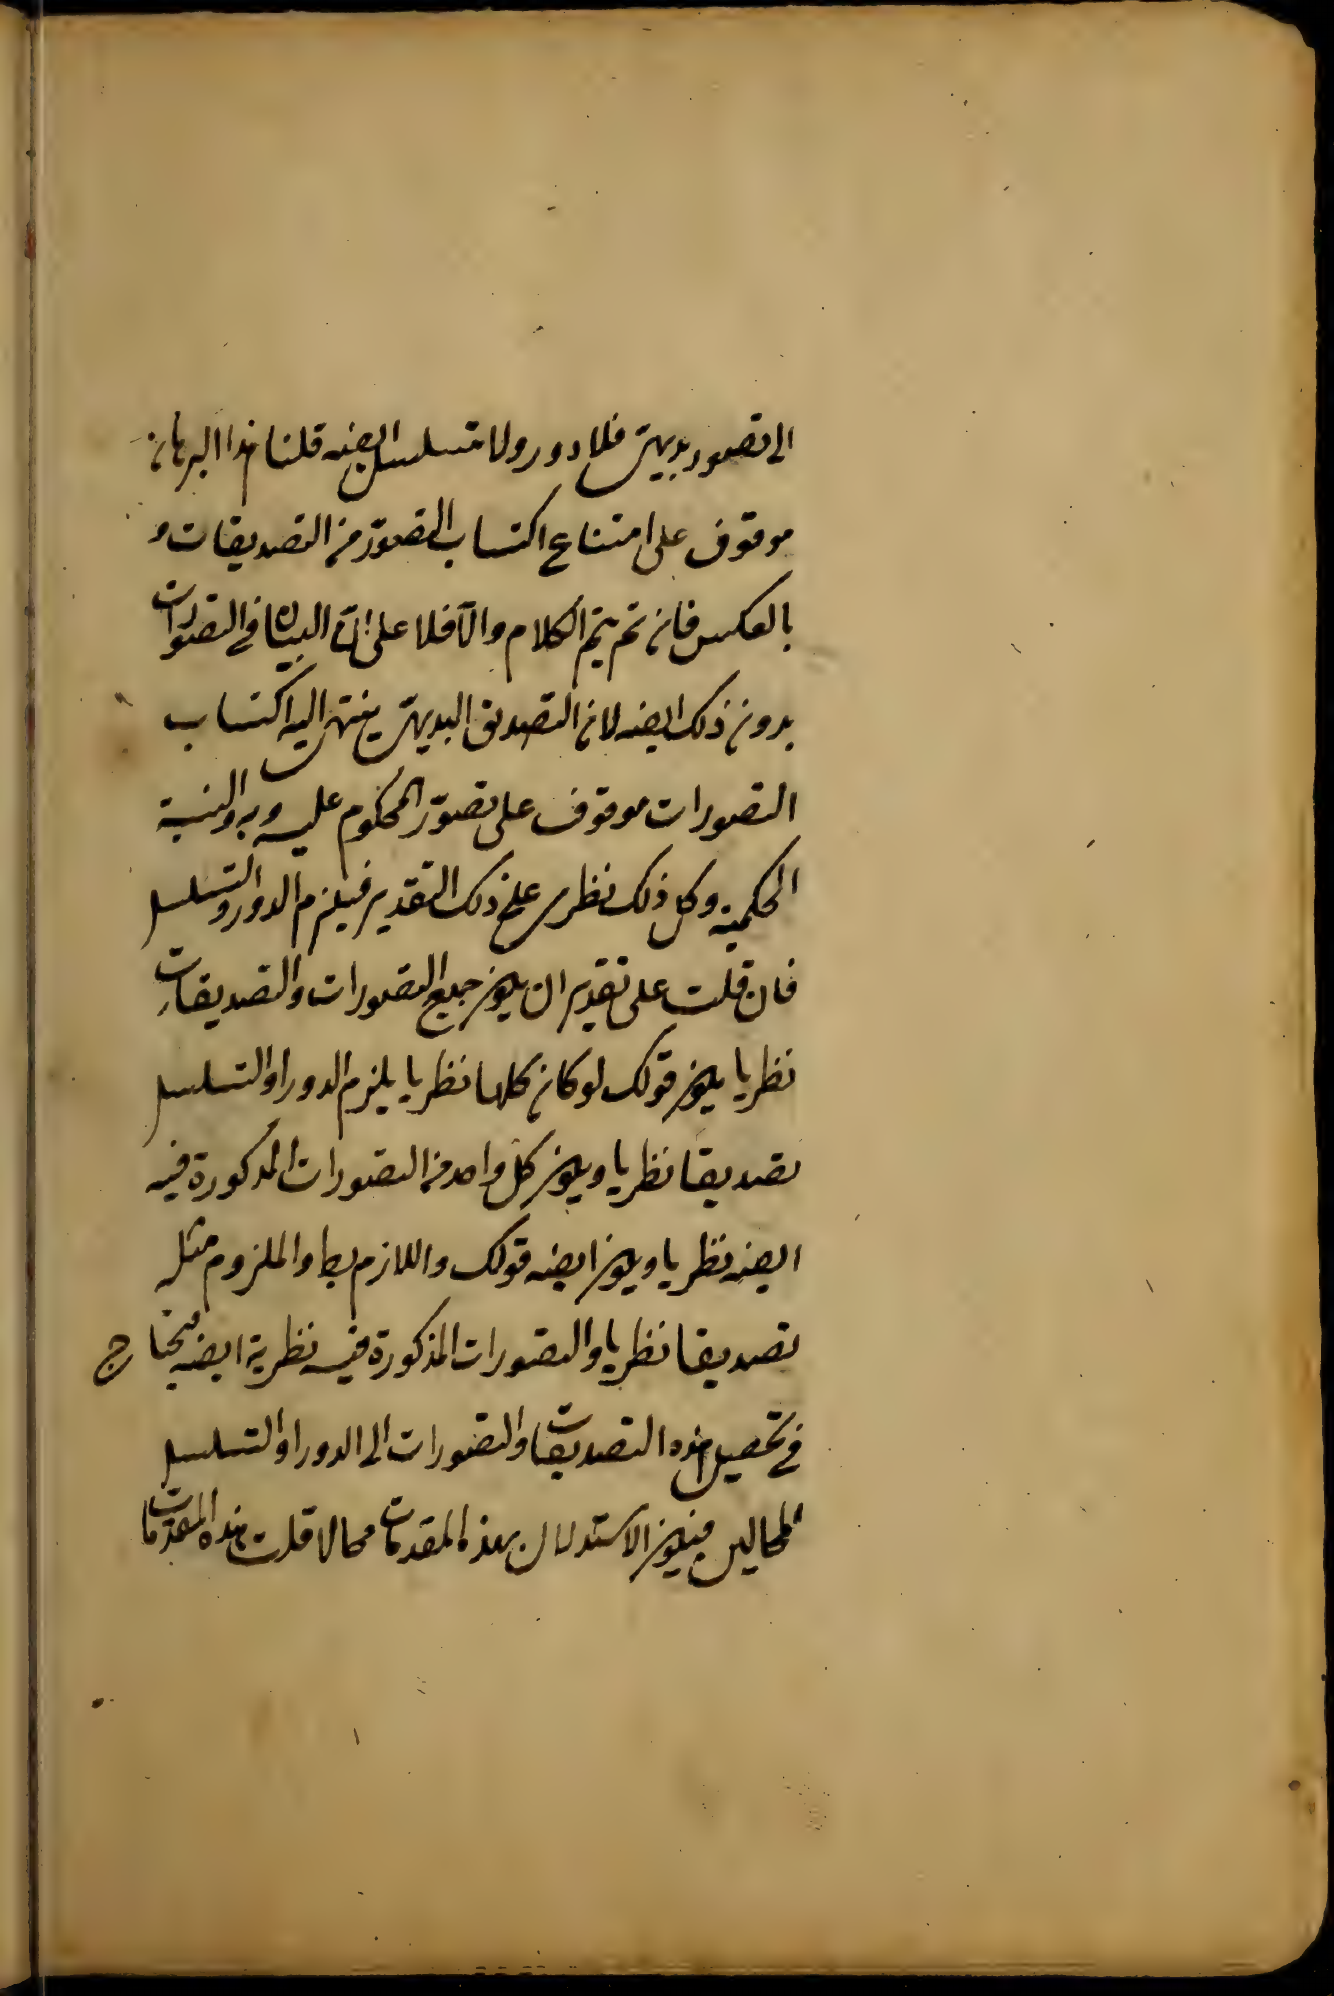 الى تصور بديهى فلا دور ولا تسلسل ايضه قلنا هذا البرهان
موقوف على امتناع اكتساب التصوّر من التصديقات و
بالعكس فان تم يتم الكلام والّا فلا على انّ البيان فى التصوّرات
بدون ذلك ايضه لان التصديق البديهى ينتهى اليه اكتساب
التصورات موقوف على تصوّر المحكوم عليه وبه والنسبة
الحكمية وكل ذلك نظرى على ذلك التقدير فيلزم الدور والتسلسل
فان قلت على تقدير ان يكون جميع التصورات والتصديقات
نظريا يكون قولك لو كان كلها نظريا يلزم الدور او التسلسل
تصديقا نظريا ويكون كل واحد من التصورات المذكورة فيه
ايضه نظريا ويكون ايضه قولك واللازم بط والملزوم مثله
تصديقا نظريا والتصورات المذكورة فيه نظرية ايضه فيحتاج
فى تحصيل هذه التصديقات والتصورات الى الدور او التسلسل
المحالين فيكون الاستدلال بهذه المقدمات محالا قلت هذه المقدمات